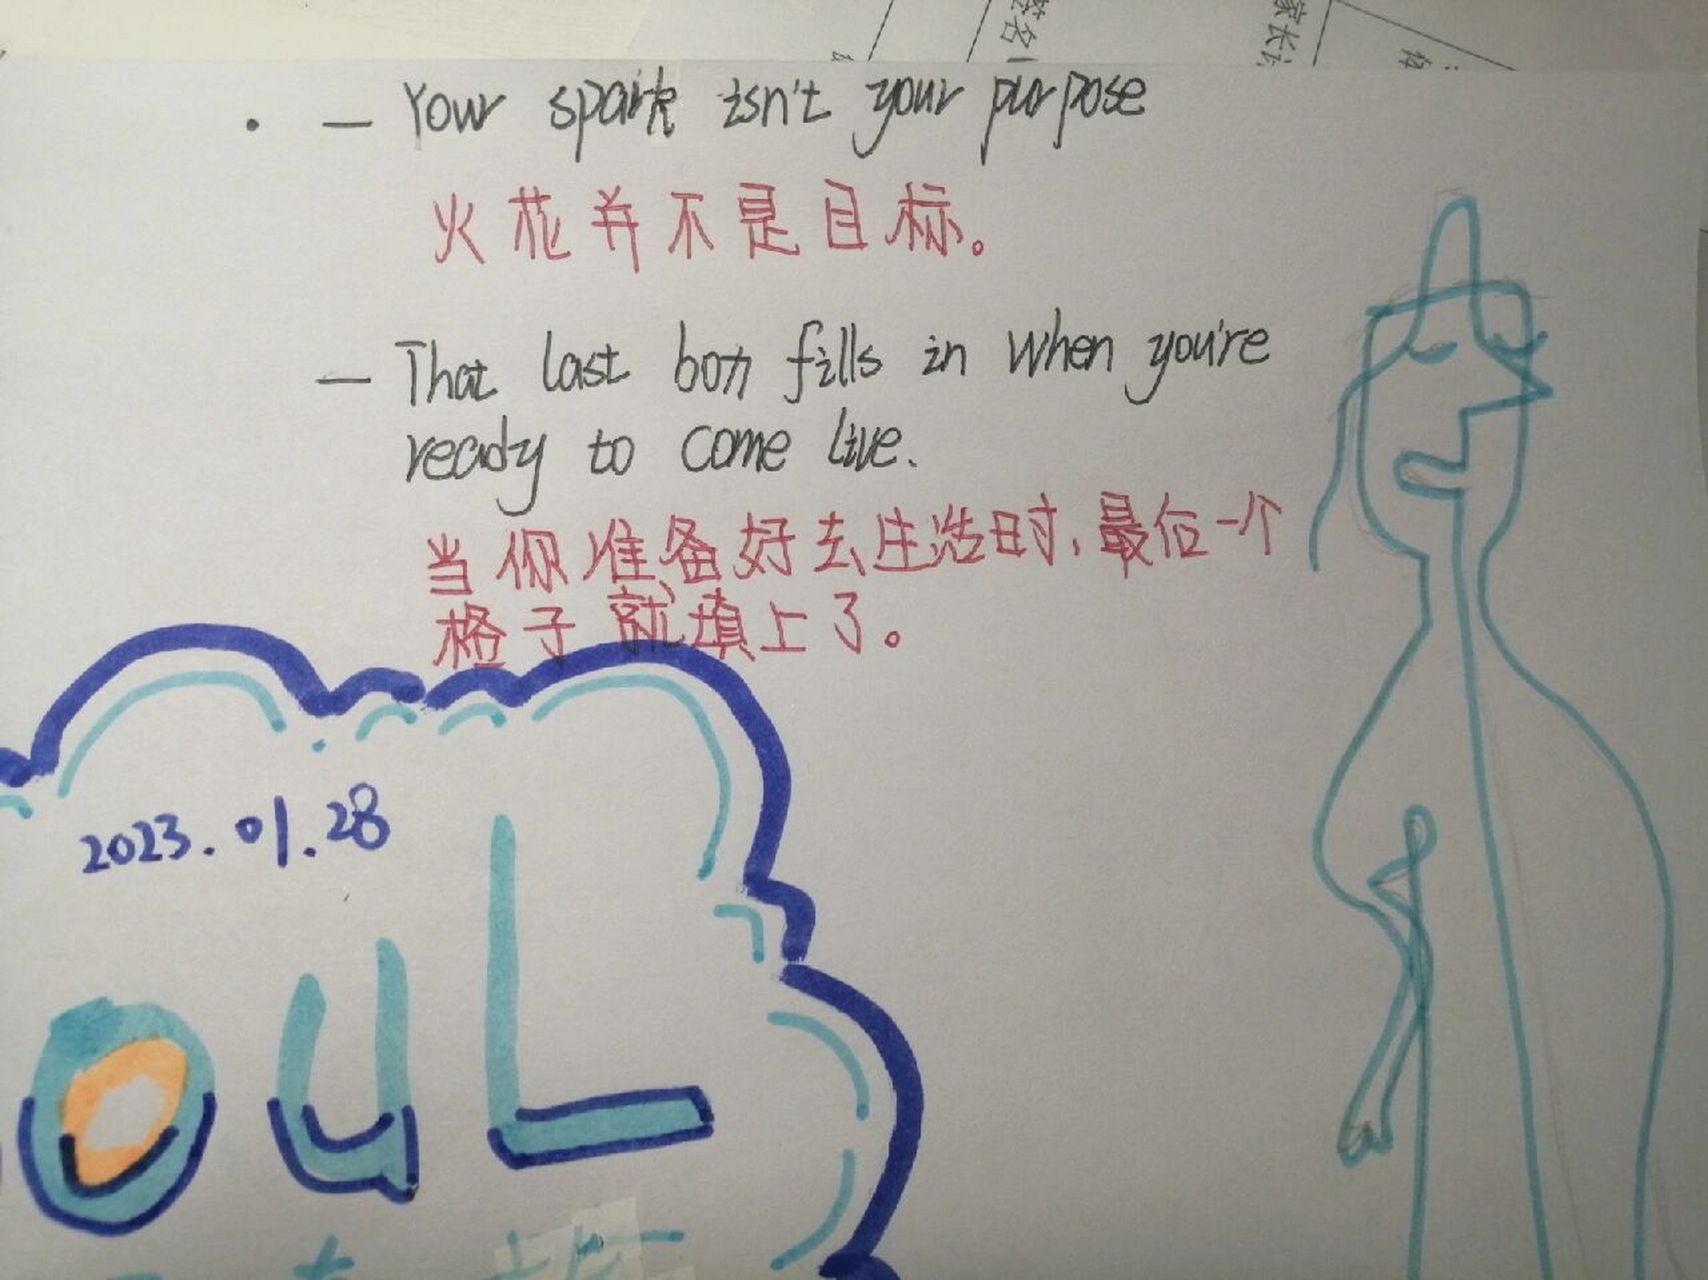 签名
家长
· — Your spark isn't your purpose
火花并不是目标。
— That last box fills in when you're
ready to come live.
当你准备好去生活时,最后一个
格子就填上了。
2023.01.28
OUL